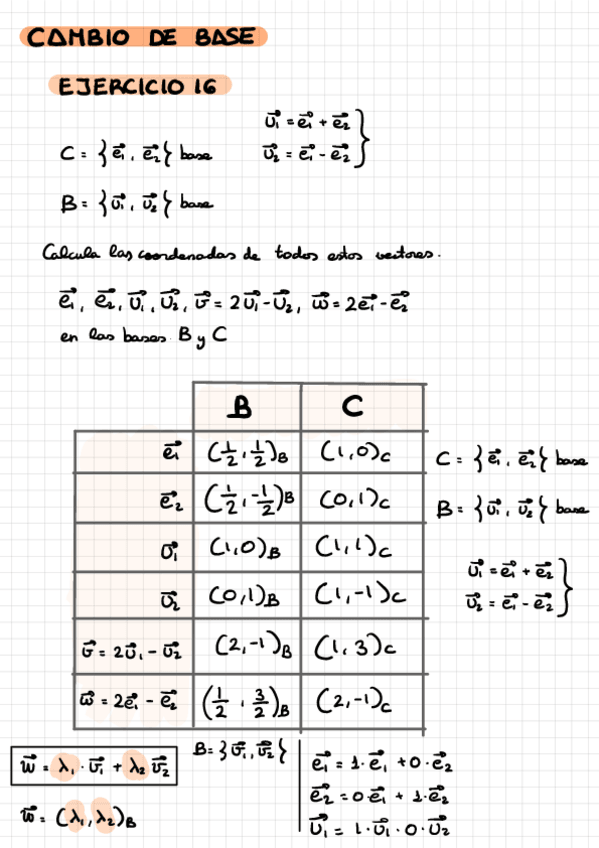 CAMBIO DE BASE
EJERCICIO 16
C = {e⃗₁, e⃗₂} base
u⃗₁ = e⃗₁ + e⃗₂ }
u⃗₂ = e⃗₁ - e⃗₂ }
B = {u⃗₁, u⃗₂} base
Calcula las coordenadas de todos estos vectores.
e⃗₁, e⃗₂, u⃗₁, u⃗₂, v⃗ = 2u⃗₁ - u⃗₂, w⃗ = 2e⃗₁ - e⃗₂
en las bases B y C
B C
e⃗₁ (1/2, 1/2)B (1,0)C
e⃗₂ (1/2, -1/2)B (0,1)C
u⃗₁ (1,0)B (1,1)C
u⃗₂ (0,1)B (1,-1)C
v⃗ = 2u⃗₁ - u⃗₂ (2,-1)B (1,3)C
w⃗ = 2e⃗₁ - e⃗₂ (1/2, 3/2)B (2,-1)C
C = {e⃗₁, e⃗₂} base
B = {u⃗₁, u⃗₂} base
u⃗₁ = e⃗₁ + e⃗₂ }
u⃗₂ = e⃗₁ - e⃗₂ }
w⃗ = λ₁ · u⃗₁ + λ₂ u⃗₂
w⃗ = (λ₁, λ₂)B
B = {u⃗₁, u⃗₂}
e⃗₁ = 1 · e⃗₁ + 0 · e⃗₂
e⃗₂ = 0 · e⃗₁ + 1 · e⃗₂
u⃗₁ = 1 · u⃗₁ · 0 · u⃗₂